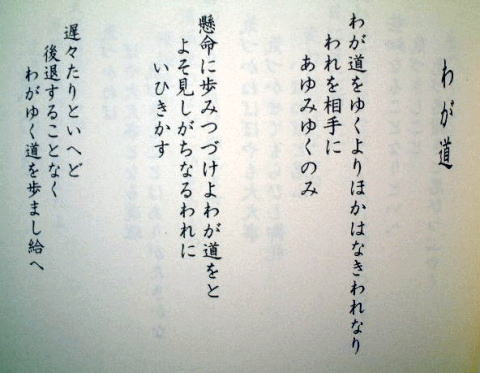 わが道
わが道をゆくよりほかはなきわれなり
われを相手に
あゆみゆくのみ
懸命に歩みつづけよわが道をと
よそ見しがちなるわれに
いひきかす
遅々たりといへど
後退することなく
わがゆく道を歩まし給へ